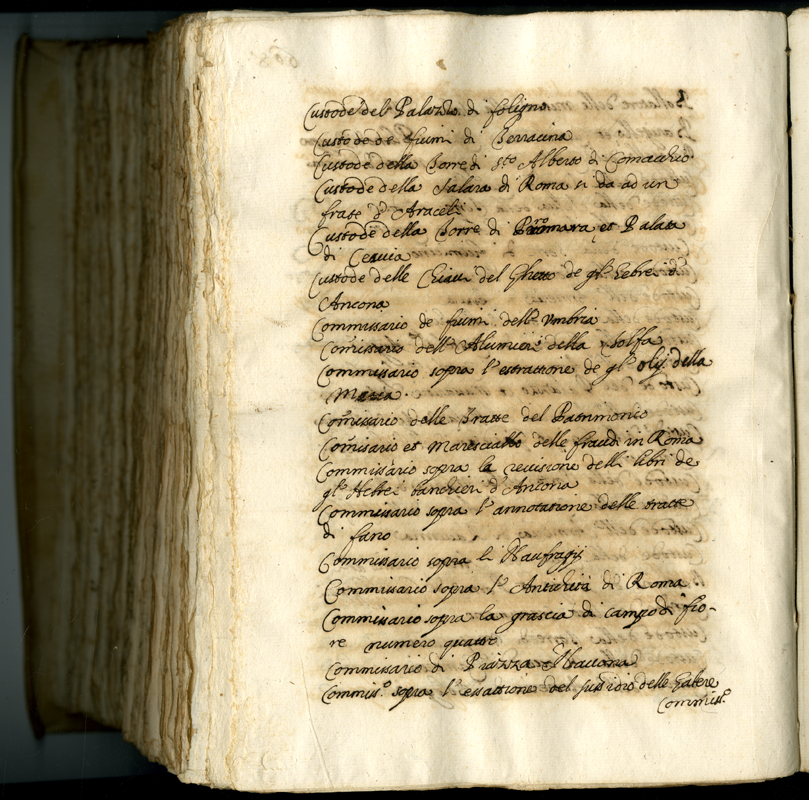 Custode del Palazzo di foligno
Custode de fiumi di Terracina
Custode della Torre di Sto Alberto di Comacchio
Custode della Salara di Roma si da ad un
frate d'Araceli
Custode della Torre di Primara et Palata
di Cervia
Custode delle Chiavi del Ghetto de gl'Hebrei di
Ancona
Commissario de fiumi dell'Umbria
Comissario dell'Alumiere della Tolfa
Commissario sopra l'estrattione de gl'olij della
Marca
Comissario delle Tratte del Patrimonio
Comisario et Maresciallo delle fraudi in Roma
Commissario sopra la revisione delli libri de
gl'Hebrei banchieri d'Ancona
Commissario sopra l'annotatione delle tratte
di fano
Commissario sopra li Naufragij
Commissario sopra l'Antichità di Roma
Commissario sopra la grascia di campo di fio-
re numero quattro
Commissario di Piazza Navona
Commiss.o sopra l'essattione del sussidio delle Galere
Commiss.o